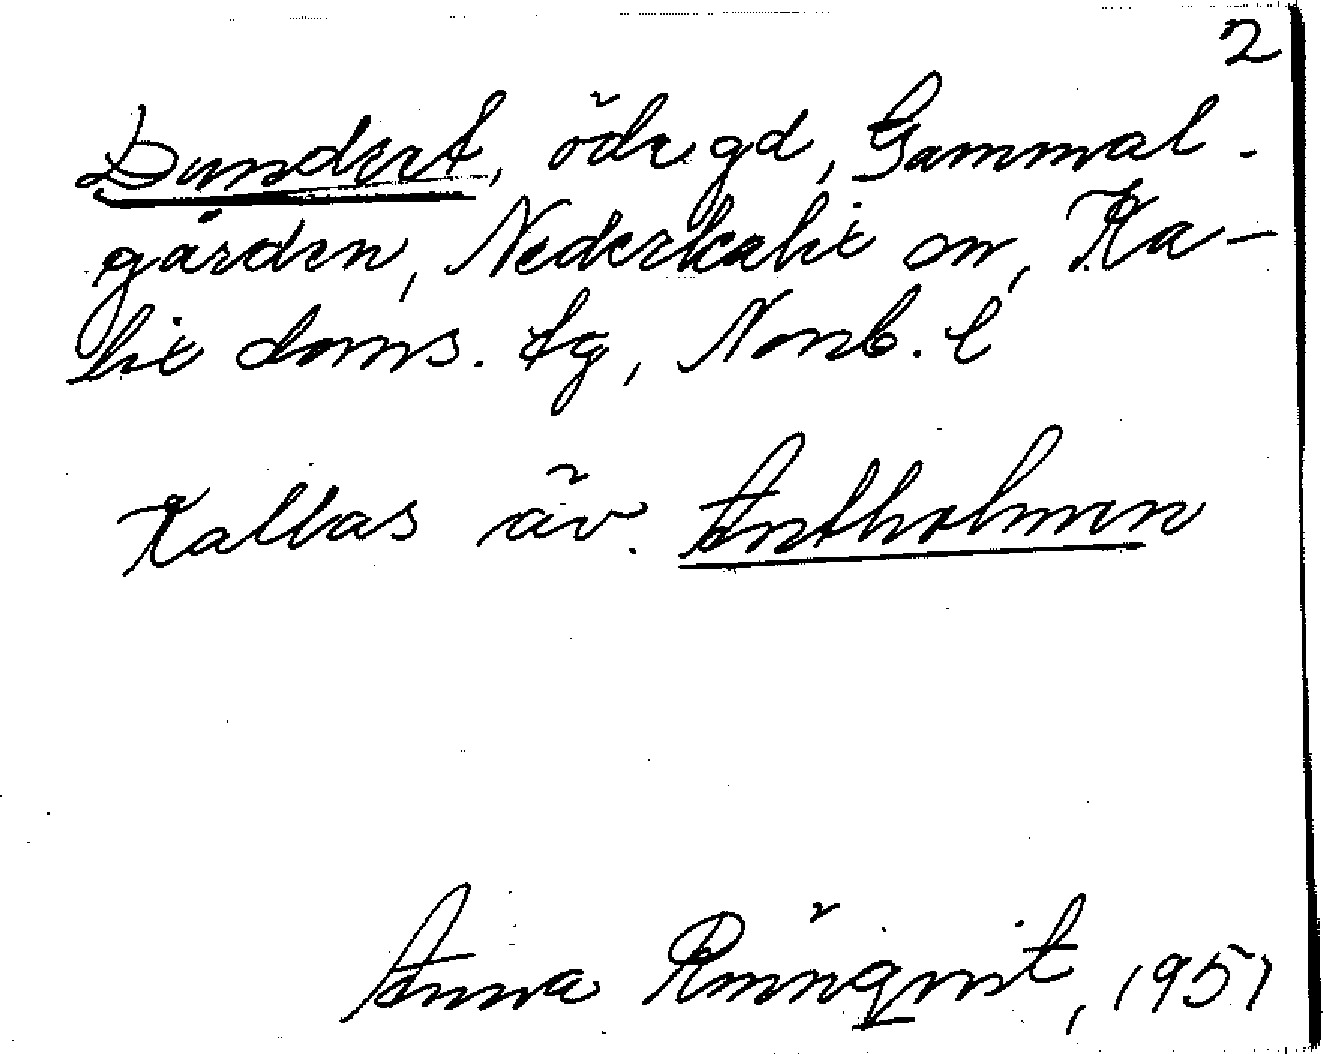 2
Dundret, öde gd, Gammal-
gården, Nederkalix sn, Ka-
lix doms. tg, Norrb. l
Kallas äv. Antholmen
Anna Rönnqvist, 1951